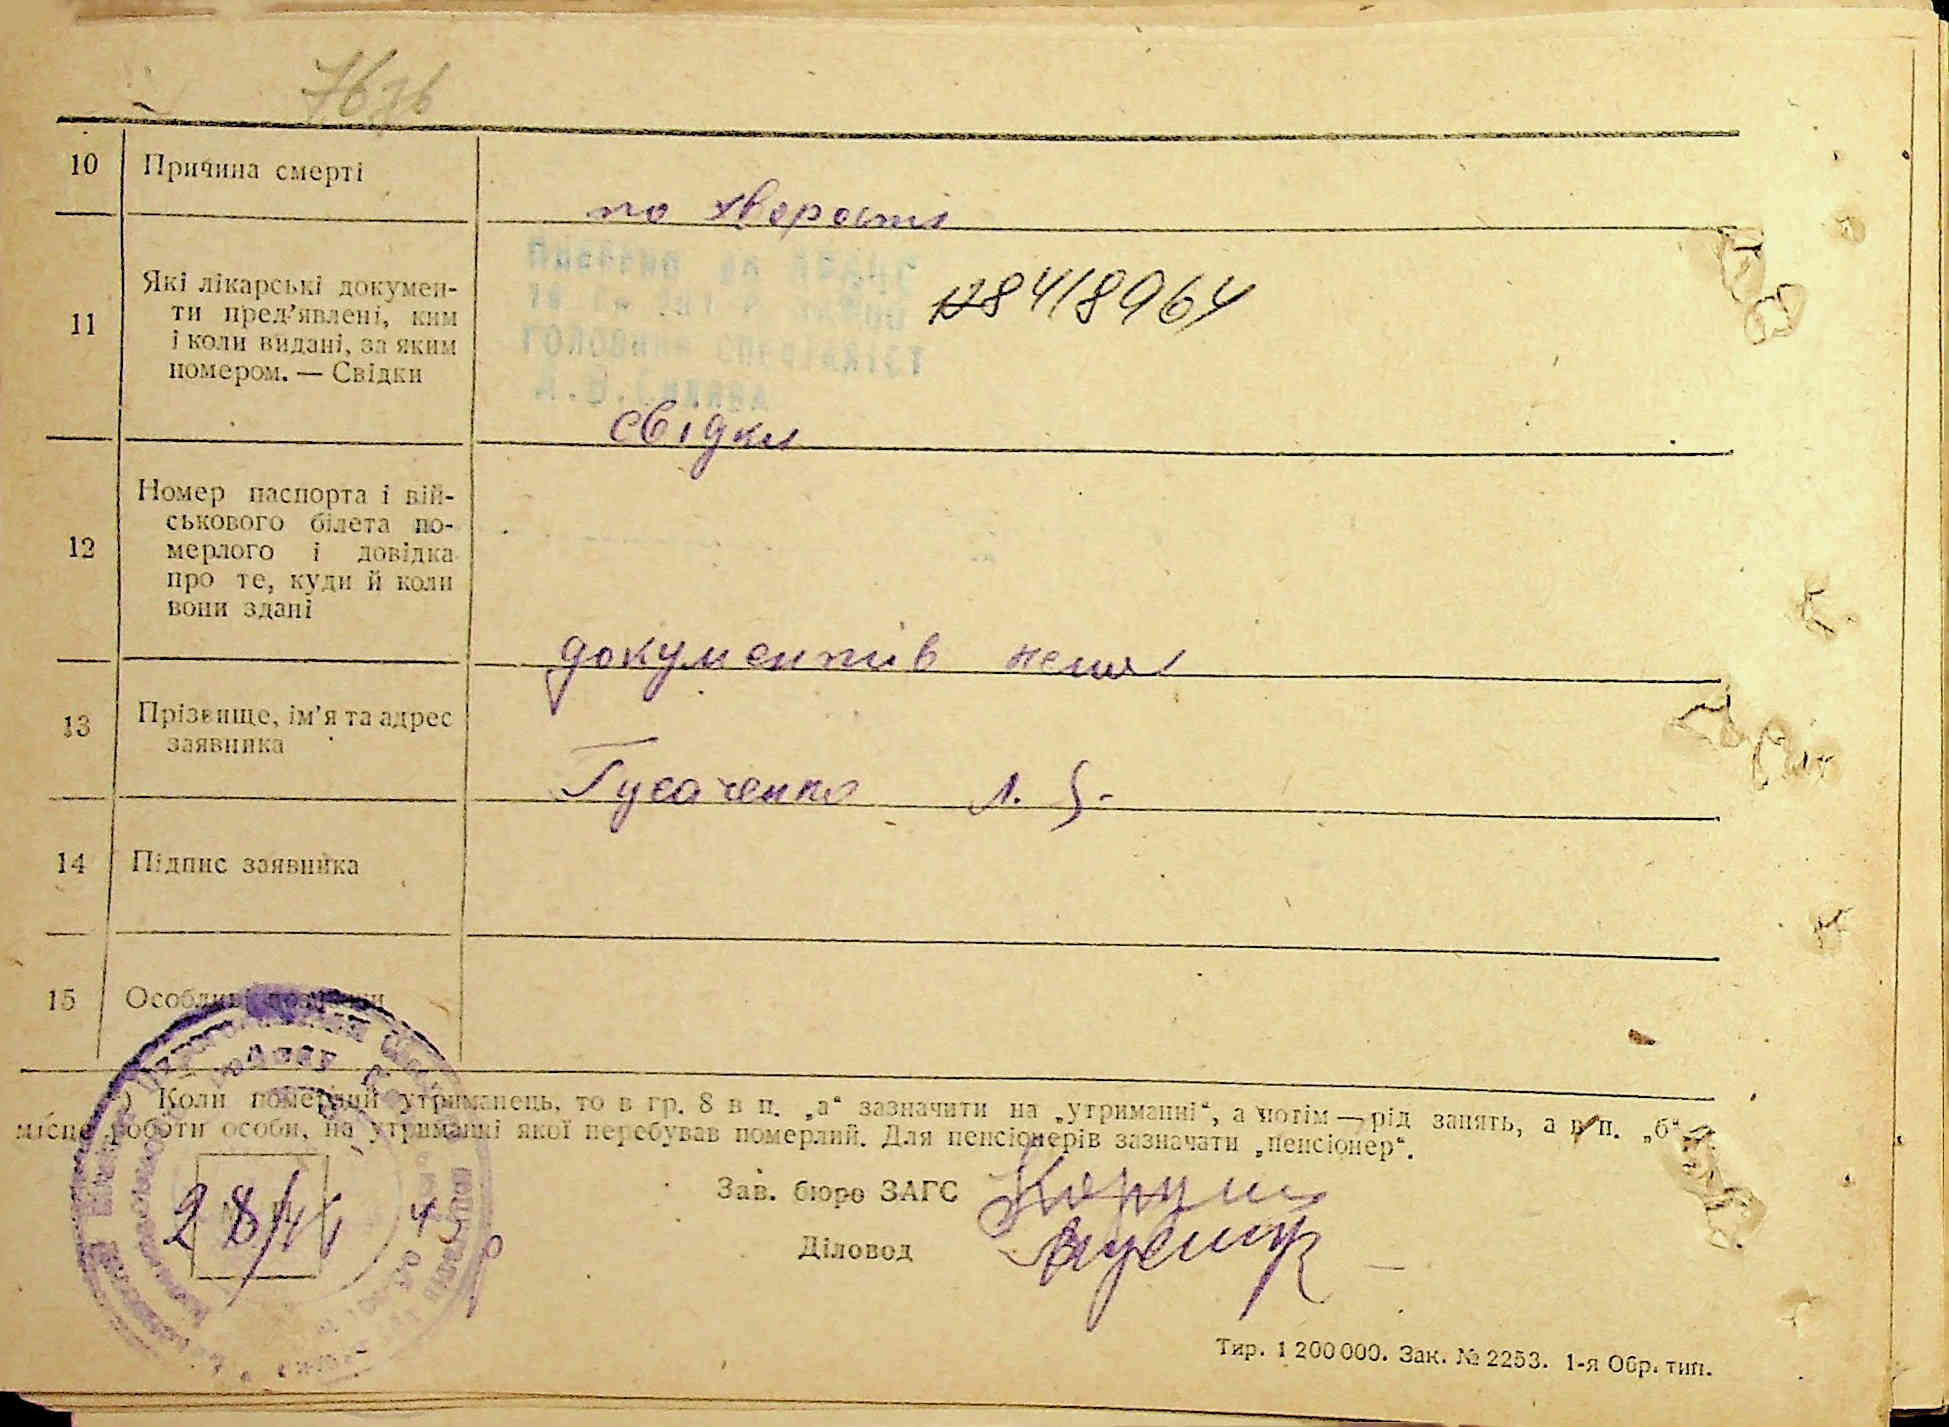 76зв
10 Причина смерті
по хворости
11 Які лікарські докумен-
ти пред’явлені, ким
і коли видані, за яким
номером. — Свідки
8418964
ГОЛОВНИЙ СПЕЦІАЛІСТ
свідки
12 Номер паспорта і вій-
ськового білета по-
мерлого і довідка
про те, куди й коли
вони здані
документів нема
13 Прізвище, ім’я та адрес
заявника
Гусаченко Л.
14 Підпис заявника
15 Особливі
) Коли померлий утриманець, то в гр. 8 в п. „а“ зазначити на „утриманні“, а потім — рід занять, а в п. „б“
місце роботи особи, на утриманні якої перебував померлий. Для пенсіонерів зазначати „пенсіонер“.
Зав. бюро ЗАГС
Діловод
Тир. 1 200 000. Зак. № 2253. 1-я Обр. тип.